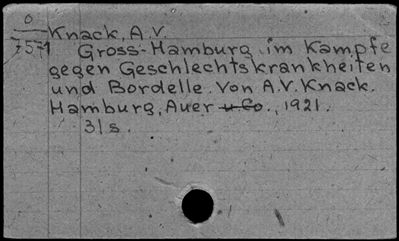 O
7571
Knack, A.V.
Gross-Hamburg im Kampfe
gegen Geschlechtskrankheiten
und Bordelle. Von A.V. Knack.
Hamburg, Auer u Co., 1921.
31 s.